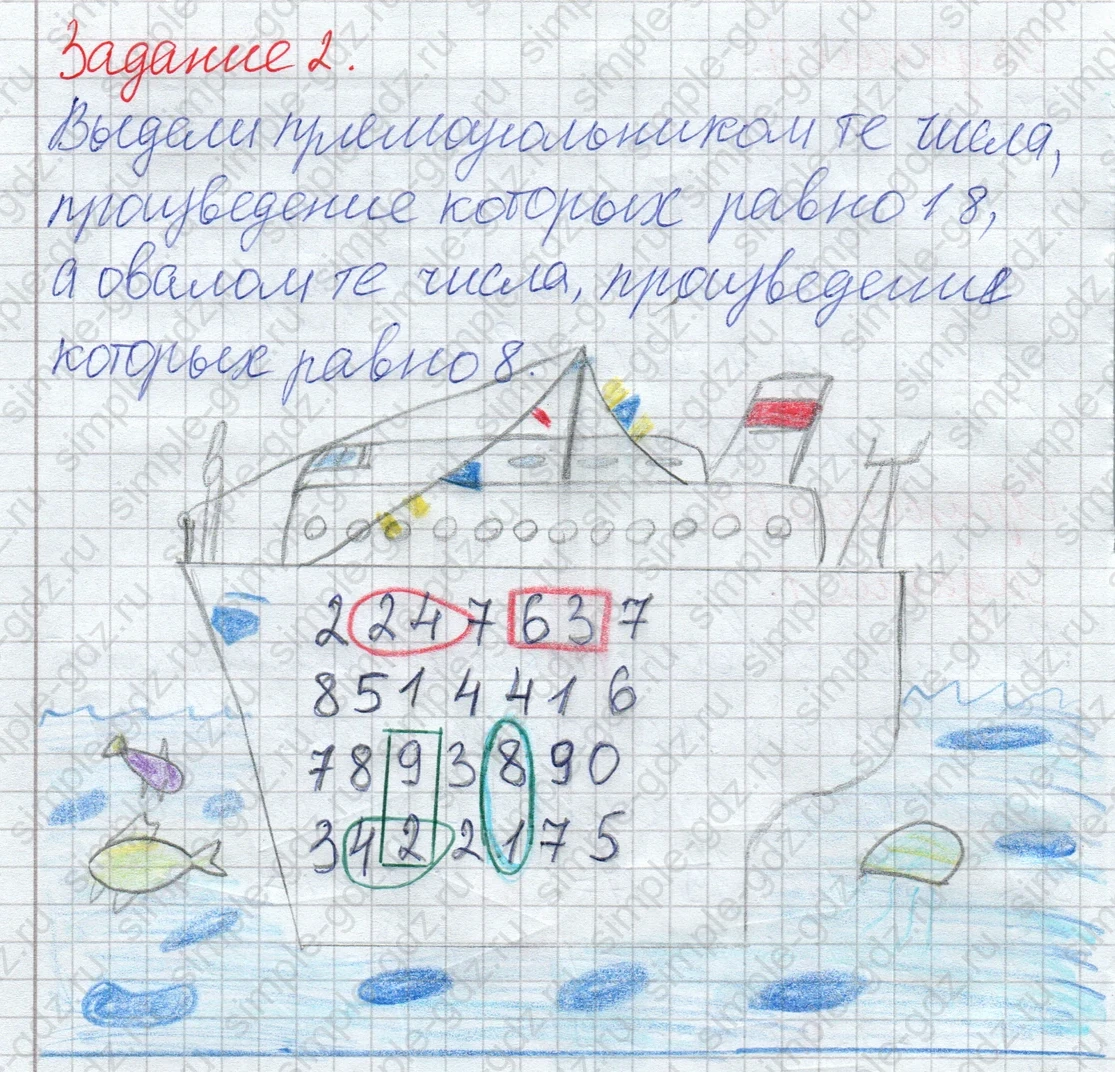 Задание 2.
Выдели прямоугольником те числа,
произведение которых равно 18,
а овалом те числа, произведение
которых равно 8.
2 2 4 7 6 3 7
8 5 1 4 4 1 6
7 8 9 3 8 9 0
3 4 2 2 1 7 5
simple-gdz.ru